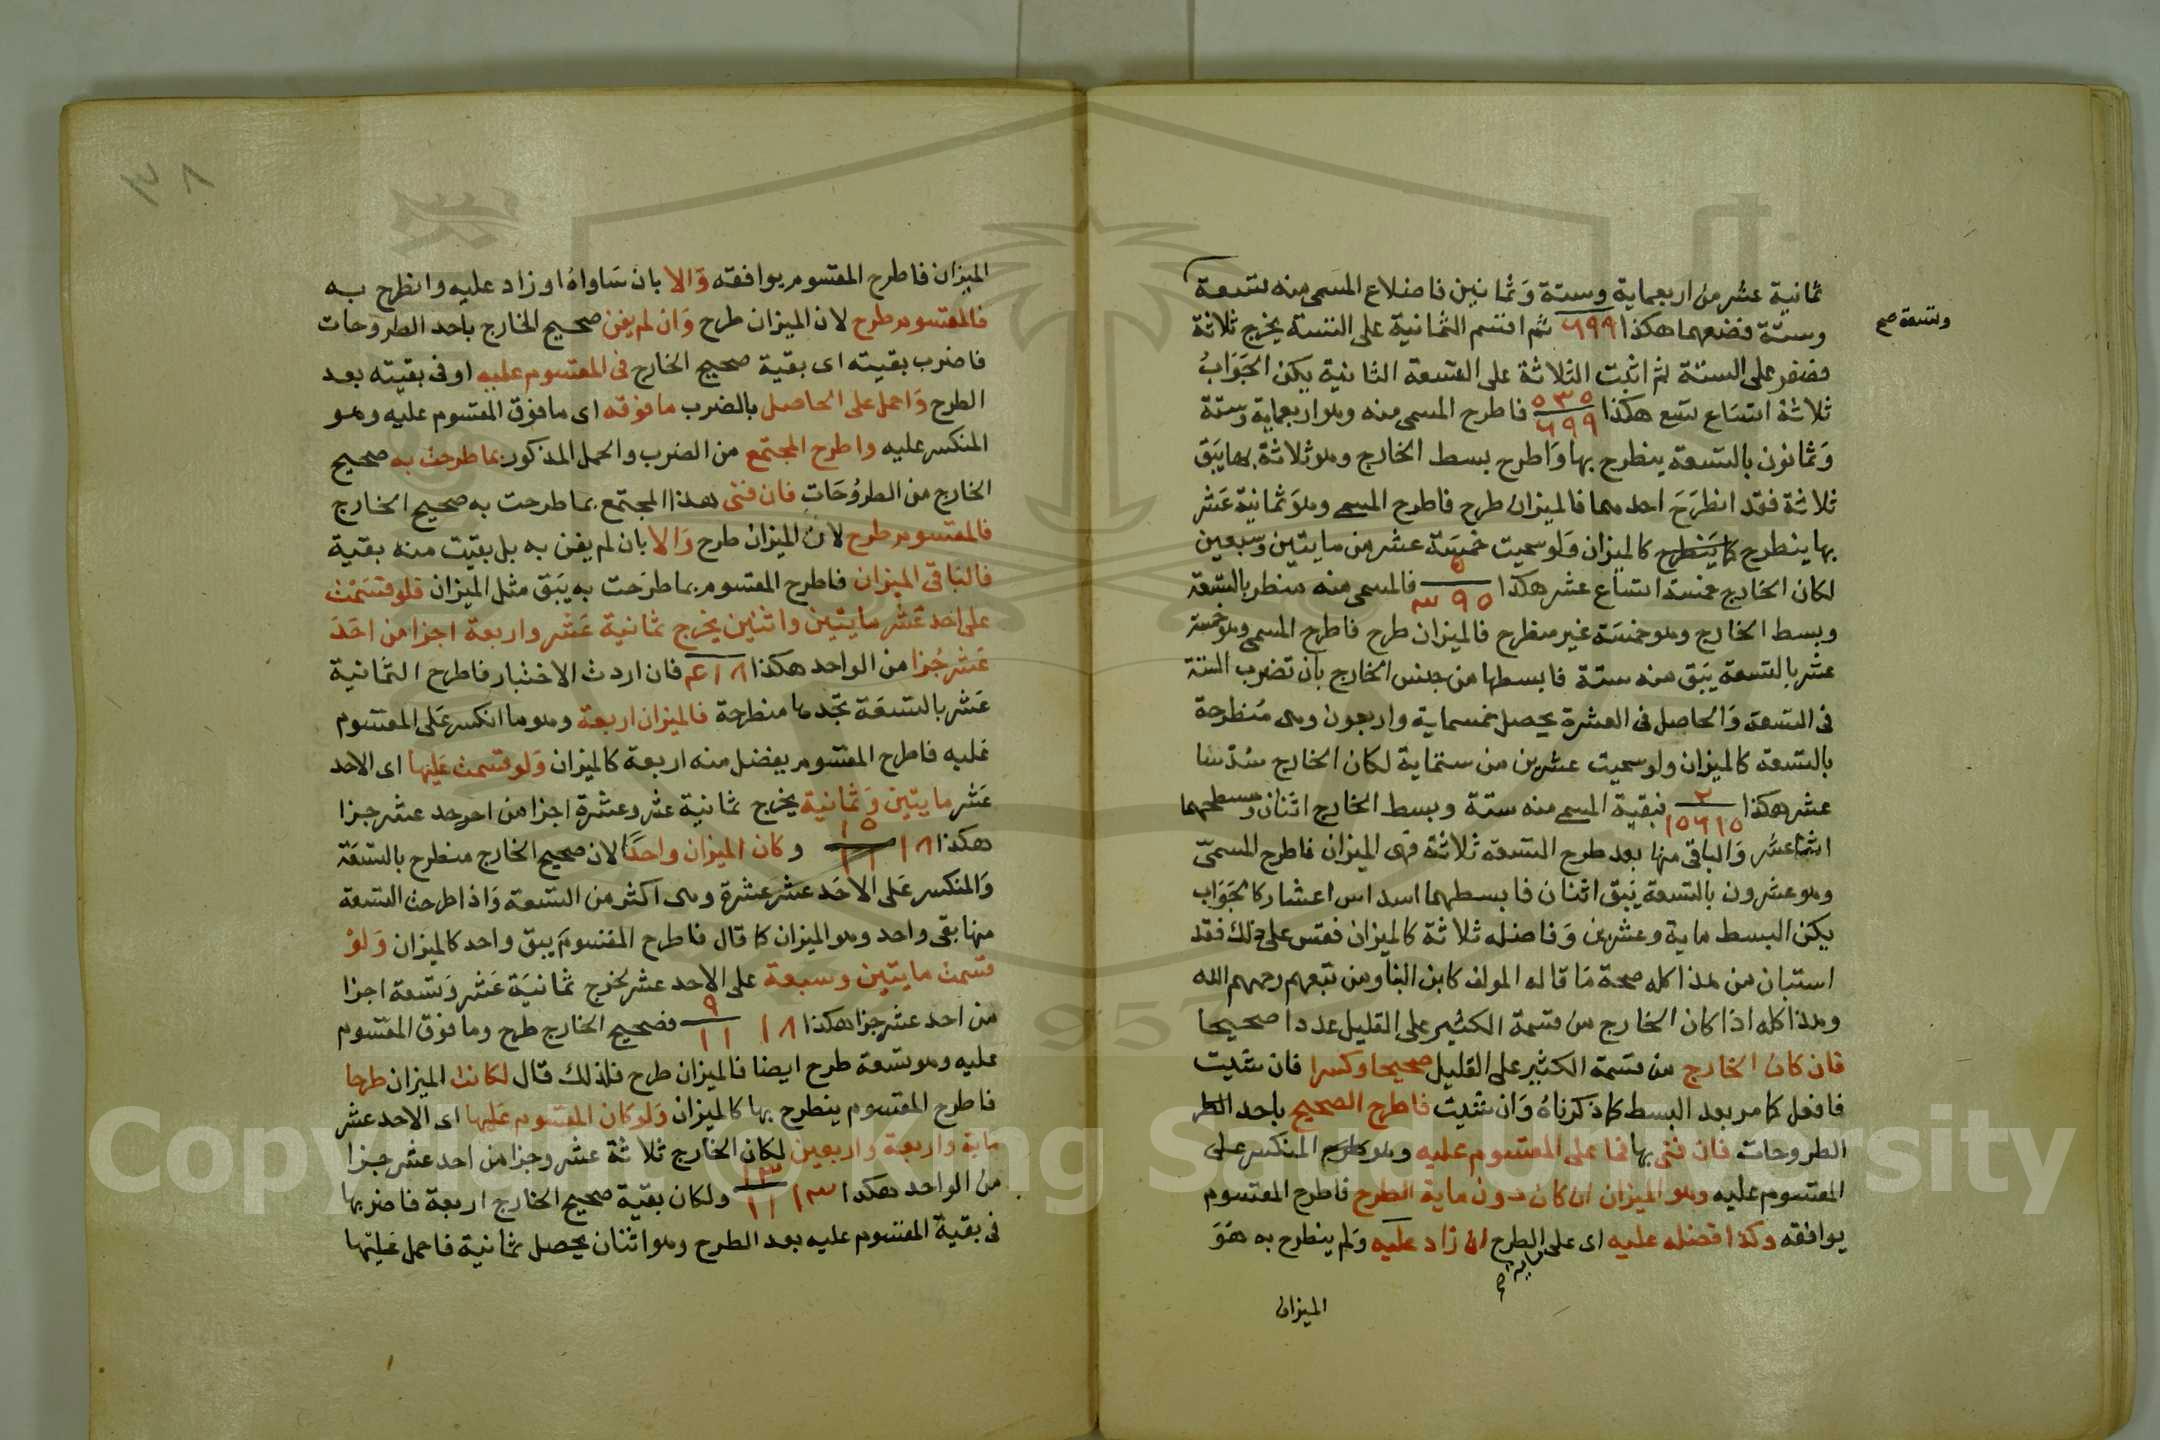 ثمانية عشر من اربعماية وستة وثمانين فاضلاع المسمى منه تسعة
وتسعة صح
وستة فضعهما هكذا ٦٩٩ ثم اقسم الثمانية على الستة يخرج ثلاثة
فصفر على الستة ثم اثبت الثلاثة على التسعة الثانية يكن الجواب
ثلاثة اتساع تسع هكذا فاطرح المسمى منه وهو اربعماية وستة
وثمانون بالتسعة ينطرح بها واطرح بسط الخارج وهو ثلاثة بها يبق
ثلاثة فقد انطرح احدهما فالميزان طرح فاطرح المسمى وهو ثمانية عشر
بها ينطرح كالميزان ولو سميت خمسة عشر من مايتين وسبعين
لكان الخارج خمسة اتساع عشر هكذا فالمسمى منه منطرح بالتسعة
وبسط الخارج وهو خمسة غير منطرح فالميزان طرح فاطرح المسمى وهو خمسة
عشر بالتسعة يبق منه ستة فابسطها من جنس الخارج بان تضرب الستة
فى التسعة والحاصل فى العشرة يحصل خمسماية واربعون وهى منطرحة
بالتسعة كالميزان ولو سميت عشرين من ستماية لكان الخارج سدسا
عشر هكذا فبقية المسمى منه ستة وبسط الخارج اثنان ومسطحهما
اثنا عشر والباقى منها بعد طرح التسعة ثلاثة فهى الميزان فاطرح المسمى
وهو عشرون بالتسعة يبق اثنان فابسطهما اسداس اعشار كالجواب
يكن البسط ماية وعشرين وفاضله ثلاثة كالميزان فقس على ذلك فقد
استبان من هذا كله صحة ما قاله المولف كابن البنا ومن تبعهم رحمهم الله
وهذا كله اذا كان الخارج من قسمة الكثير على القليل عددا صحيحا
فان كان الخارج من قسمة الكثير على القليل صحيحا وكسرا فان شئت
فافعل كما مر بعد البسط كما ذكرناه وان شئت فاطرح الصحيح باحد الطر
الطروحات فان فنى بها فما على المقسوم عليه وهو المنكسر على
المقسوم عليه وهو الميزان ان كان دون ماية الطرح فاطرح المقسوم
يوافقه وكذا فضله عليه اى على الطرح ان زاد عليه ولم ينطرح به هو
الميزان
٣٨
الميزان فاطرح المقسوم يوافقه والا بان ساواه او زاد عليه وانطرح به
فالمقسوم طرح لان الميزان طرح وان لم يفن صحيح الخارج باحد الطروحات
فاضرب بقيته اى بقية صحيح الخارج فى المقسوم عليه او فى بقيته بعد
الطرح واحمل على الحاصل بالضرب ما فوقه اى ما فوق المقسوم عليه وهو
المنكسر عليه واطرح المجتمع من الضرب والحمل المذكور بما طرحت به صحيح
الخارج من الطروحات فان فنى هذا المجتمع بما طرحت به صحيح الخارج
فالمقسوم طرح لان الميزان طرح والا بان لم يفن به بل بقيت منه بقية
فالباقى الميزان فاطرح المقسوم بما طرحت به يبق مثل الميزان فلو قسمت
على احد عشر مايتين واثنين يخرج ثمانية عشر واربعة اجزا من احد
عشر جزا من الواحد هكذا فان اردت الاختبار فاطرح الثمانية
عشر بالتسعة تجدها منطرحة فالميزان اربعة وهو ما انكسر على المقسوم
عليه فاطرح المقسوم يفضل منه اربعة كالميزان ولو قسمت عليها اى الاحد
عشر مايتين وثمانية يخرج ثمانية عشر وعشرة اجزا من احد عشر جزا
هكذا وكان الميزان واحدا لان صحيح الخارج منطرح بالتسعة
والمنكسر على الاحد عشر عشرة وهى اكثر من التسعة واذا طرحت التسعة
منها بقى واحد وهو الميزان كما قال فاطرح المقسوم يبق واحد كالميزان ولو
قسمت مايتين وسبعة على الاحد عشر لخرج ثمانية عشر وتسعة اجزا
من احد عشر جزا هكذا ١٨ ٩ ١١ فصحيح الخارج طرح وما فوق المقسوم
عليه وهو تسعة طرح ايضا فالميزان طرح فلذلك قال لكانت الميزان طرحا
فاطرح المقسوم ينطرح بها كالميزان ولو كان المقسوم عليها اى الاحد عشر
ماية واربعة واربعين لكان الخارج ثلاثة عشر وجزا من احد عشر جزا
من الواحد هكذا ولكان بقية صحيح الخارج اربعة فاضربها
فى بقية المقسوم عليه بعد الطرح وهو اثنان يحصل ثمانية فاحمل عليها
Copyright © King Saud University
1957